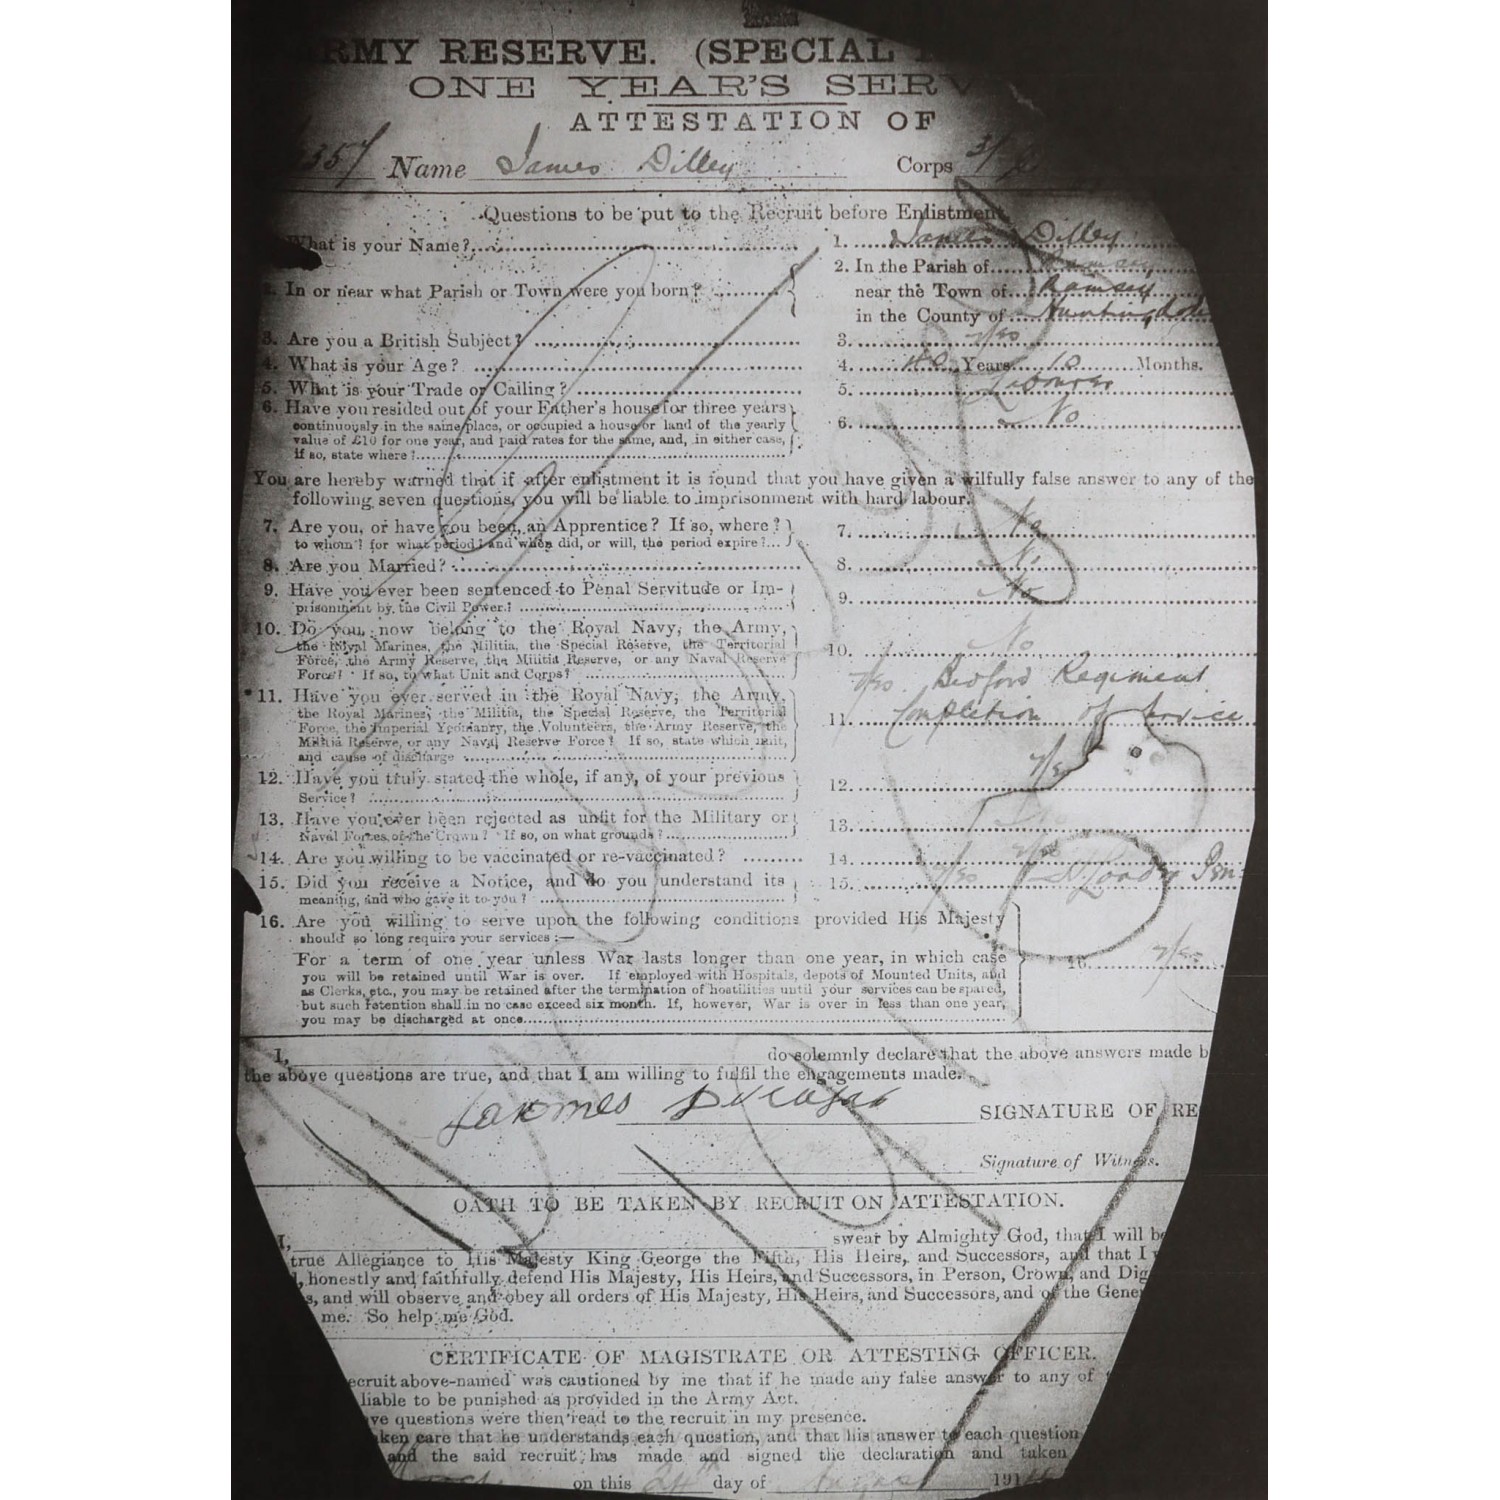 ARMY RESERVE. (SPECIAL
ONE YEAR'S SERV
ATTESTATION OF
357 Name James Dilley Corps 3/
Questions to be put to the Recruit before Enlistment.
What is your Name? 1. James Dilley
2. In or near what Parish or Town were you born? 2. In the Parish of
near the Town of Ramsey
in the County of
3. Are you a British Subject? 3. Yes
4. What is your Age? 4. Years 10 Months.
5. What is your Trade or Calling? 5. Labourer
6. Have you resided out of your Father's house for three years 6. No
continuously in the same place, or occupied a house or land of the yearly
value of £10 for one year, and paid rates for the same, and, in either case,
if so, state where?
You are hereby warned that if after enlistment it is found that you have given a wilfully false answer to any of the
following seven questions, you will be liable to imprisonment with hard labour.
7. Are you, or have you been, an Apprentice? If so, where? 7. No
to whom? for what period? and when did, or will, the period expire?
8. Are you Married? 8. No
9. Have you ever been sentenced to Penal Servitude or Im- 9. No
prisonment by the Civil Power?
10. Do you now belong to the Royal Navy, the Army, 10. No
the Royal Marines, the Militia, the Special Reserve, the Territorial
Force, the Army Reserve, the Militia Reserve, or any Naval Reserve
Force? If so, to what Unit and Corps?
11. Have you ever served in the Royal Navy, the Army, 11. Yes Bedford Regiment
the Royal Marines, the Militia, the Special Reserve, the Territorial Completion of Service
Force, the Imperial Yeomanry, the Volunteers, the Army Reserve, the
Militia Reserve, or any Naval Reserve Force? If so, state which unit,
and cause of discharge
12. Have you truly stated the whole, if any, of your previous 12. Yes
Service?
13. Have you ever been rejected as unfit for the Military or 13. No
Naval Forces of the Crown? If so, on what grounds?
14. Are you willing to be vaccinated or re-vaccinated? 14. Yes
15. Did you receive a Notice, and do you understand its 15. Yes
meaning, and who gave it to you?
16. Are you willing to serve upon the following conditions provided His Majesty
should so long require your services:—
For a term of one year unless War lasts longer than one year, in which case 16. Yes
you will be retained until War is over. If employed with Hospitals, depots of Mounted Units, and
as Clerks, etc., you may be retained after the termination of hostilities until your services can be spared,
but such retention shall in no case exceed six month. If, however, War is over in less than one year,
you may be discharged at once.
I, do solemnly declare that the above answers made b
the above questions are true, and that I am willing to fulfil the engagements made.
SIGNATURE OF RE
Signature of Witness.
OATH TO BE TAKEN BY RECRUIT ON ATTESTATION.
I, swear by Almighty God, that I will be
true Allegiance to His Majesty King George the Fifth, His Heirs, and Successors, and that I
, honestly and faithfully defend His Majesty, His Heirs, and Successors, in Person, Crown, and Dig
s, and will observe and obey all orders of His Majesty, His Heirs, and Successors, and of the Gene
me. So help me God.
CERTIFICATE OF MAGISTRATE OR ATTESTING OFFICER.
ecruit above-named was cautioned by me that if he made any false answer to any of
liable to be punished as provided in the Army Act.
ve questions were then read to the recruit in my presence.
ken care that he understands each question, and that his answer to each question
and the said recruit has made and signed the declaration and taken
on this 24th day of August 191